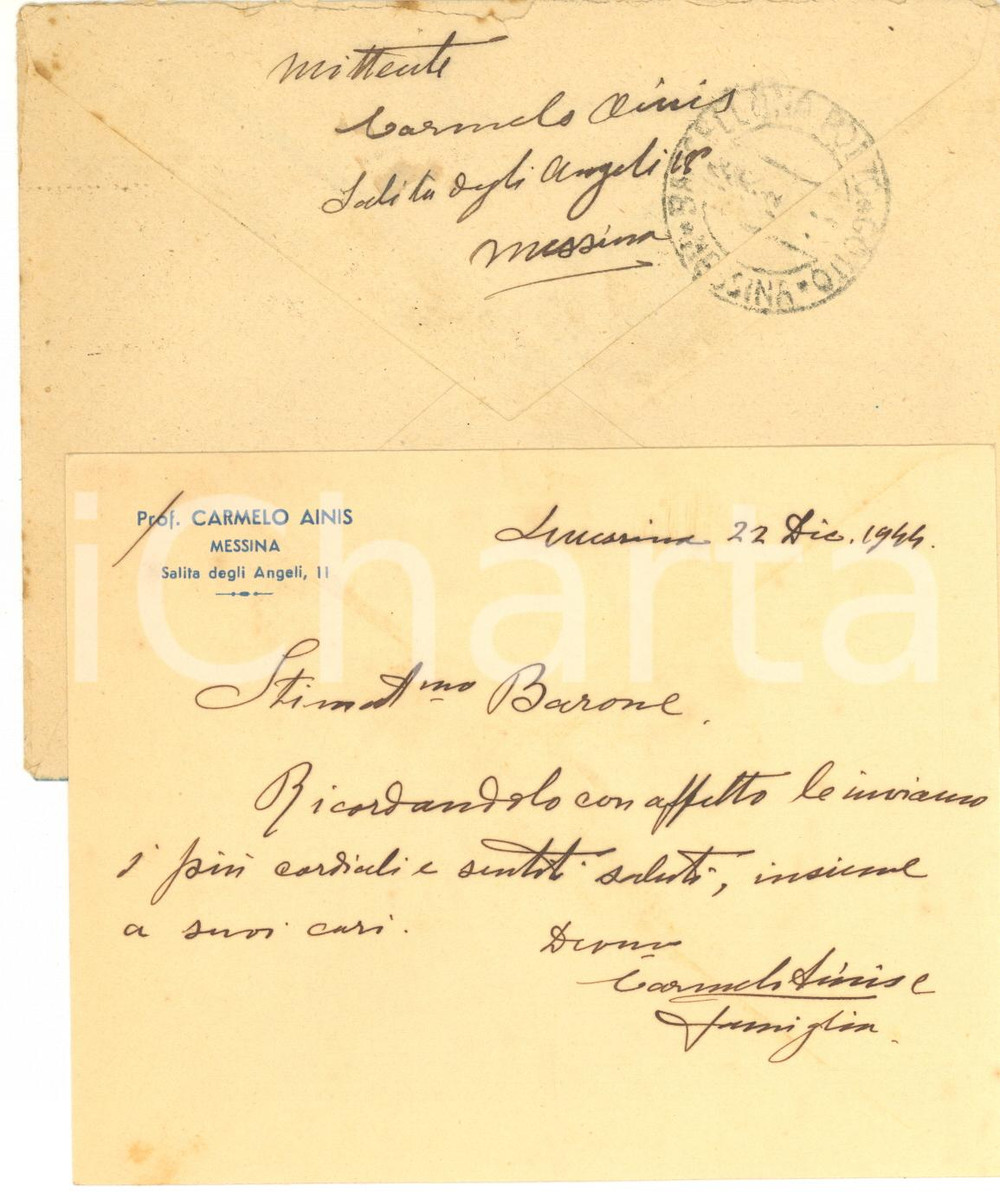 Mittente
Carmelo Ainis
Salita degli Angeli
Messina
BARCELLONA POZZO DI GOTTO
* MESSINA *
Prof. CARMELO AINIS
MESSINA
Salita degli Angeli, 11
Messina 22 Dic. 1944.
iCharta
Stimat.mo Barone.
Ricordandolo con affetto le inviamo
i più cordiali e sentiti saluti, insieme
a suoi cari.
Dev.mo
Carmelo Ainis e
famiglia.